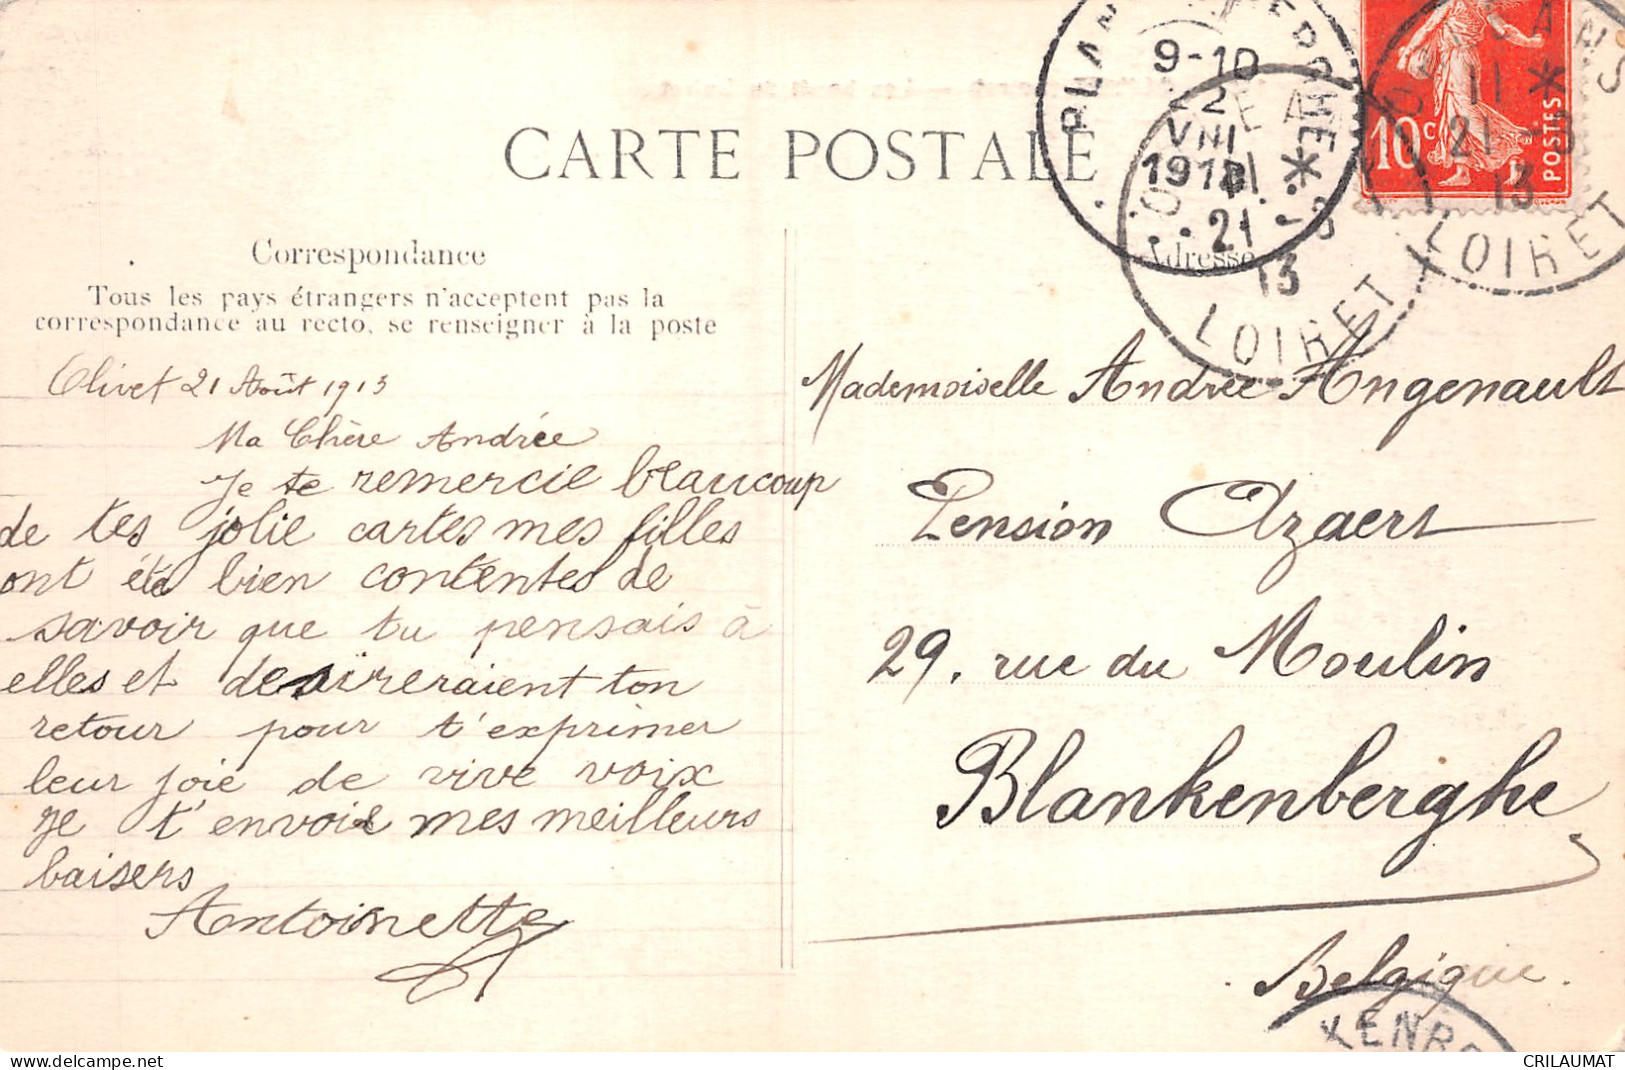 CARTE POSTALE
Correspondance
Tous les pays étrangers n'acceptent pas la
correspondance au recto, se renseigner à la poste
Olivet 21 Août 1913
Ma Chère Andrée
Je te remercie beaucoup
de tes jolie cartes mes filles
ont été bien contentes de
savoir que tu pensais à
elles et desireraient ton
retour pour t'exprimer
leur joie de vive voix
Je t'envoie mes meilleurs
baisers
Antoinette
9-10
22
VIII
1913
21
13
LOIRET
10c
POSTES
ORLEANS
11 *
21 -8
13
LOIRET
Adresse
Mademoiselle Andrée Angenault
Pension Azaert
29. rue du Moulin
Blankenberghe
Belgique.
CRILAUMAT